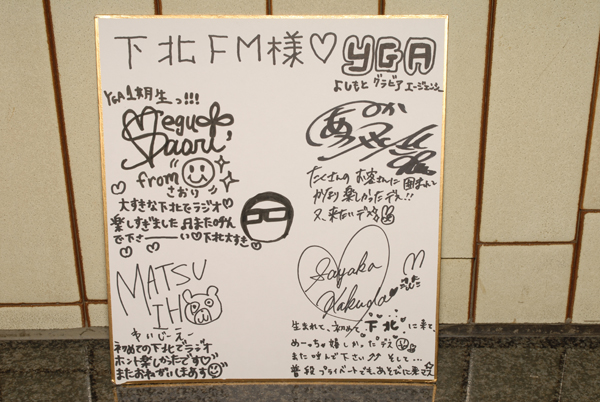 下北FM様♡ YGA
よしもと グラビア エージェンシー
YGA1期生っ!!!
Megu
Saori
from
さおり
大すきな下北でラジオ♡
楽しすぎました♬また呼ん
で下さーーーい♡下北大すき♡
たくさんの お客さんに 囲まれて
かなり 楽しかったデス!!
又、来たいデス
MATSU
IH
初めての下北でラジオ
ホント楽しかったです♡
またおねがいしまあす
Sayaka
Kakuda
生まれて、初めて、下北 に来て、
めーっちゃ 嬉しかったデス
また 呼んで 下さい そして…
普段 プライベートでも、あそびに来マス